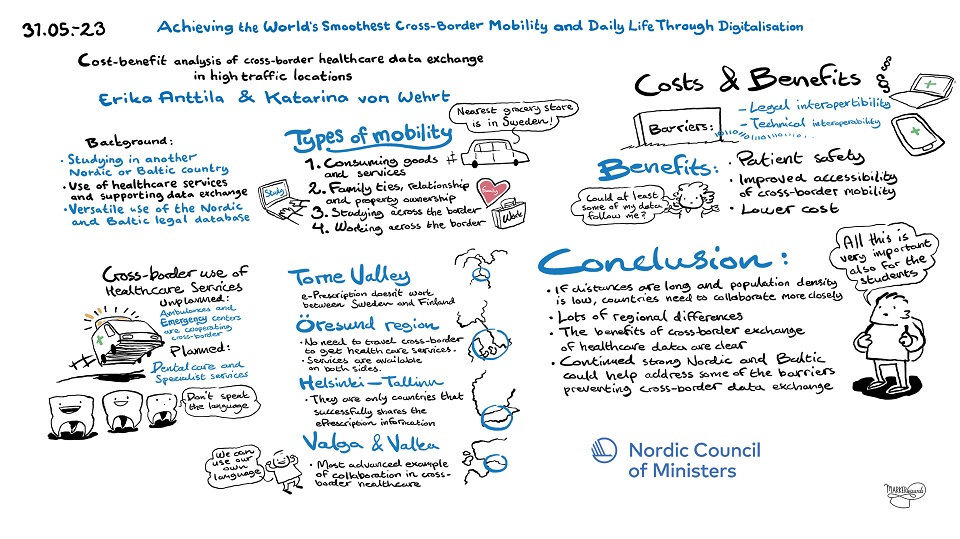 31.05.-23
Achieving the World's Smoothest Cross-Border Mobility and Daily Life Through Digitalisation
Cost-benefit analysis of cross-border healthcare data exchange
in high traffic locations
Erika Anttila & Katarina von Wehrt
Background:
· Studying in another
Nordic or Baltic country
· Use of healthcare services
and supporting data exchange
· Versatile use of the Nordic
and Baltic legal database
Types of mobility
1. Consuming goods
and services
2. Family ties, relationship
and property ownership
3. Studying across the border
4. Working across the border
Nearest grocery store
is in Sweden!
Study
Family
Work
Costs & Benefits
Barriers:
- Legal interopertibility
- Technical interoperability
Benefits:
· Patient safety
· Improved accessibility
of cross-border mobility
· Lower cost
Could at least
some of my data
follow me?
Cross-border use of
Healthcare Services
Unplanned:
Ambulances and
Emergency centers
are cooperating
cross-border
Planned:
Dental care and
Specialist services
Don't speak
the language
Torne Valley
e-Prescription doesn't work
between Sweden and Finland
Öresund region
· No need to travel cross-border
to get health care services.
· Services are available
on both sides.
Helsinki–Tallinn
· They are only countries that
successfully shares the
ePrescription information
Valga & Valka
· Most advanced example
of collaboration in cross-
border healthcare
We can
use our
own
language
Conclusion:
· If distances are long and population density
is low, countries need to collaborate more closely
· Lots of regional differences
· The benefits of cross-border exchange
of healthcare data are clear
· Continued strong Nordic and Baltic
could help address some of the barriers
preventing cross-border data exchange
All this is
very important
also for the
students
Nordic Council
of Ministers